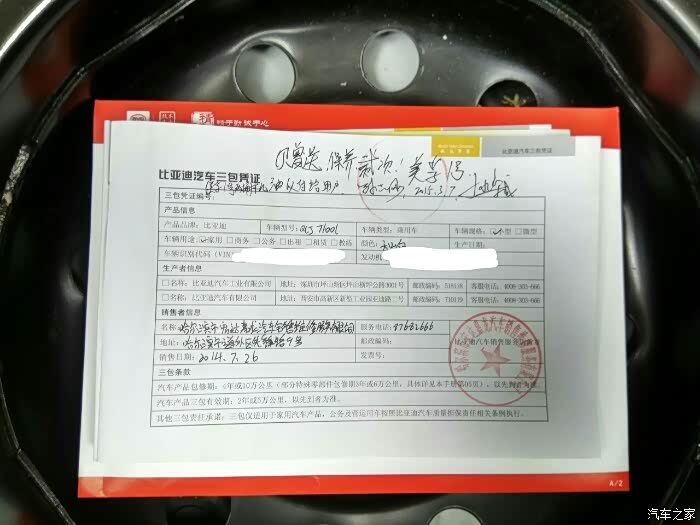 精于勤 诚于心
比亚迪汽车三包凭证
赠送保养
2015.3.7
比亚迪汽车三包凭证
三包凭证编号:
产品信息
产品品牌: 比亚迪 车辆型号: 车辆类型: 乘用车 车辆规格: ☑小型 □微型
车辆用途: ☑家用 □商务 □公务 □出租 □租赁 □教练 颜色: 生产日期:
车辆识别代码(VIN 发动机
生产者信息
□名称: 比亚迪汽车工业有限公司 地址: 深圳市坪山新区坪山横坪公路3001号 邮政编码: 518118 客服电话: 4008-303-666
□名称: 比亚迪汽车有限公司 地址: 西安市高新区新型工业园亚迪路二号 邮政编码: 710119 客服电话: 4008-303-666
销售者信息
名称: 哈尔滨 汽车销售 有限公司 服务电话: 87682666
地址: 哈尔滨市道外区先锋路 号 邮政编码: 比亚迪汽车销售服务店盖章
销售日期: 2014.7.26 发票号:
三包条款
汽车产品包修期: 4年或10万公里(部分特殊零部件包修期3年或6万公里, 具体详见本手册第05页), 以先到者为准。
汽车产品三包有效期: 2年或5万公里, 以先到者为准。
其他三包责任承诺: 三包仅适用于家用汽车产品, 公务及营运用车按照比亚迪汽车质量担保责任相关条例执行。
A/2
汽车之家